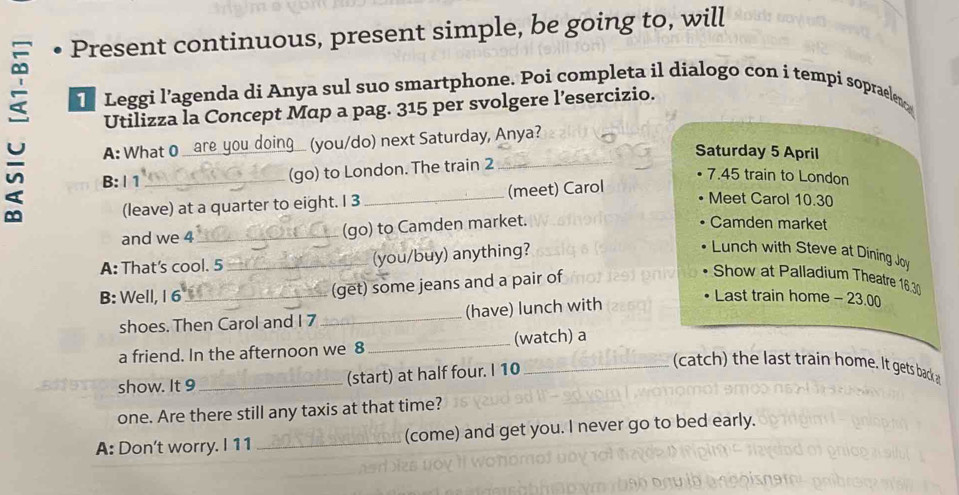 BASIC [A1-B1]
• Present continuous, present simple, be going to, will
1 Leggi l'agenda di Anya sul suo smartphone. Poi completa il dialogo con i tempi sopraelencati
Utilizza la Concept Map a pag. 315 per svolgere l'esercizio.
A: What 0 are you doing (you/do) next Saturday, Anya?
B: I 1 ____________ (go) to London. The train 2 ____________
(leave) at a quarter to eight. I 3 ____________ (meet) Carol
and we 4 ____________ (go) to Camden market.
A: That's cool. 5 ____________ (you/buy) anything?
B: Well, I 6 ____________ (get) some jeans and a pair of
shoes. Then Carol and I 7 ____________ (have) lunch with
a friend. In the afternoon we 8 ____________ (watch) a
show. It 9 ____________ (start) at half four. I 10 ____________ (catch) the last train home. It gets back at
one. Are there still any taxis at that time?
A: Don't worry. I 11 ____________ (come) and get you. I never go to bed early.
Saturday 5 April
• 7.45 train to London
• Meet Carol 10.30
• Camden market
• Lunch with Steve at Dining Joy
• Show at Palladium Theatre 16.30
• Last train home – 23.00